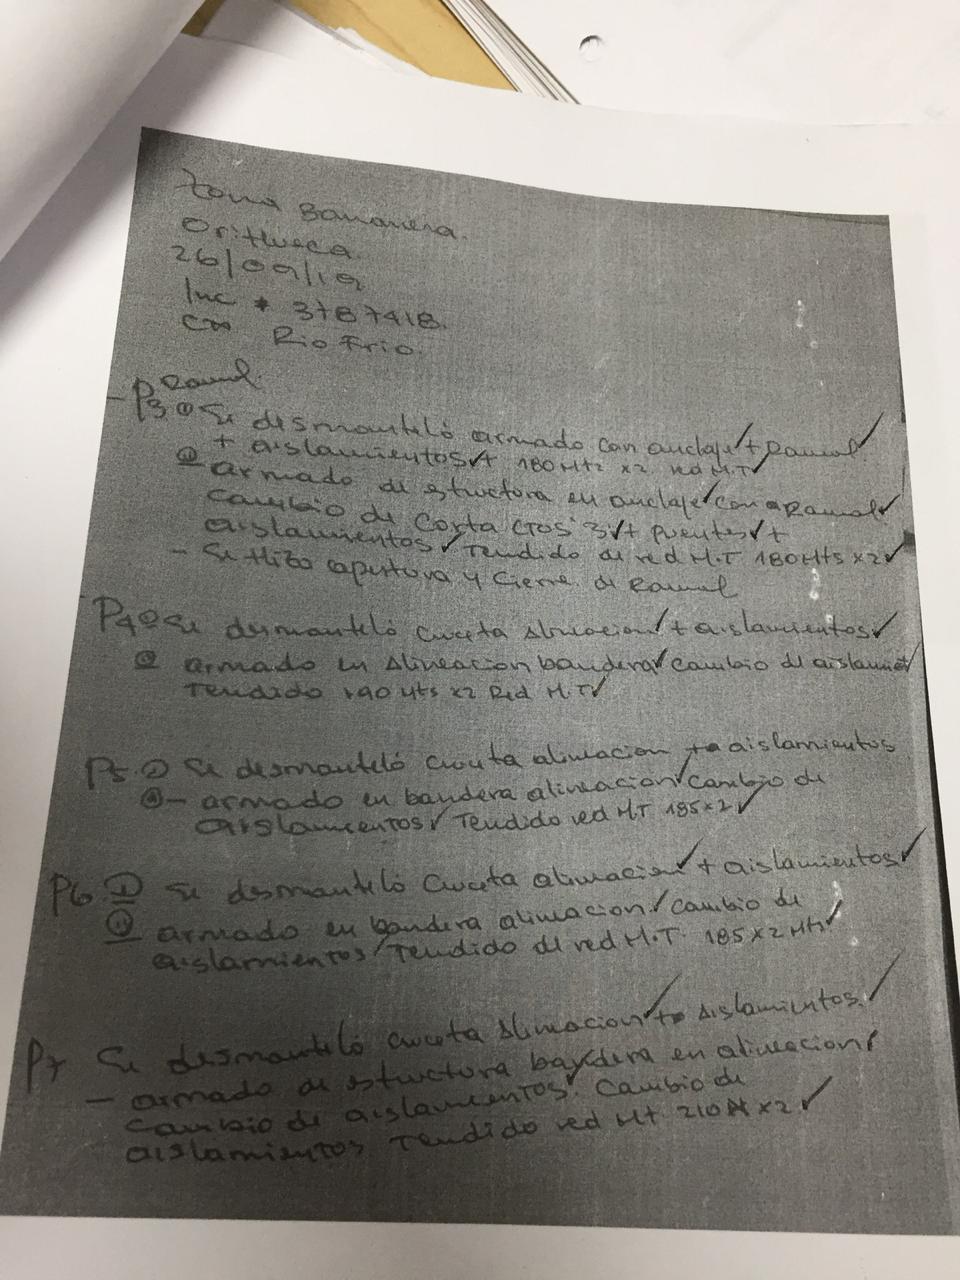 Zona Bananera.
Orihueca.
26/09/19
Inc # 3787418.
Rio Frio.
Ramal.
- P3 ① Se desmanteló armado con anclaje ✓ + Ramal ✓
+ aislamientos ✓ + 180 Mts x2 red M.T ✓
② armado de estructura en anclaje ✓ con Ramal ✓
cambio de Corta CTOS 3 ✓ + puentes ✓ +
aislamientos ✓ Tendido de red M.T 180 Mts x2 ✓
- Se Hizo apertura y Cierre de Ramal
P4 Se desmanteló cruceta alineacion ✓ + aislamientos ✓
② armado en alineacion bandera ✓ cambio de
Tendido 190 Mts x2 Red M.T ✓
P5 Se desmanteló cruceta alineacion + aislamientos
- armado en bandera alineacion ✓ cambio de
aislamientos ✓ Tendido red MT 185x2 ✓
P6 ① Se desmanteló cruceta alineacion ✓ + aislamientos ✓
armado en bandera alineacion ✓ cambio de
aislamientos ✓ Tendido de red M.T. 185 x 2 Mts ✓
P7 Se desmanteló cruceta alineacion ✓ + aislamientos. ✓
- armado de estructura bandera en alineacion ✓
cambio de aislamientos ✓. Cambio de
aislamientos Tendido red Mt 210 x2 ✓